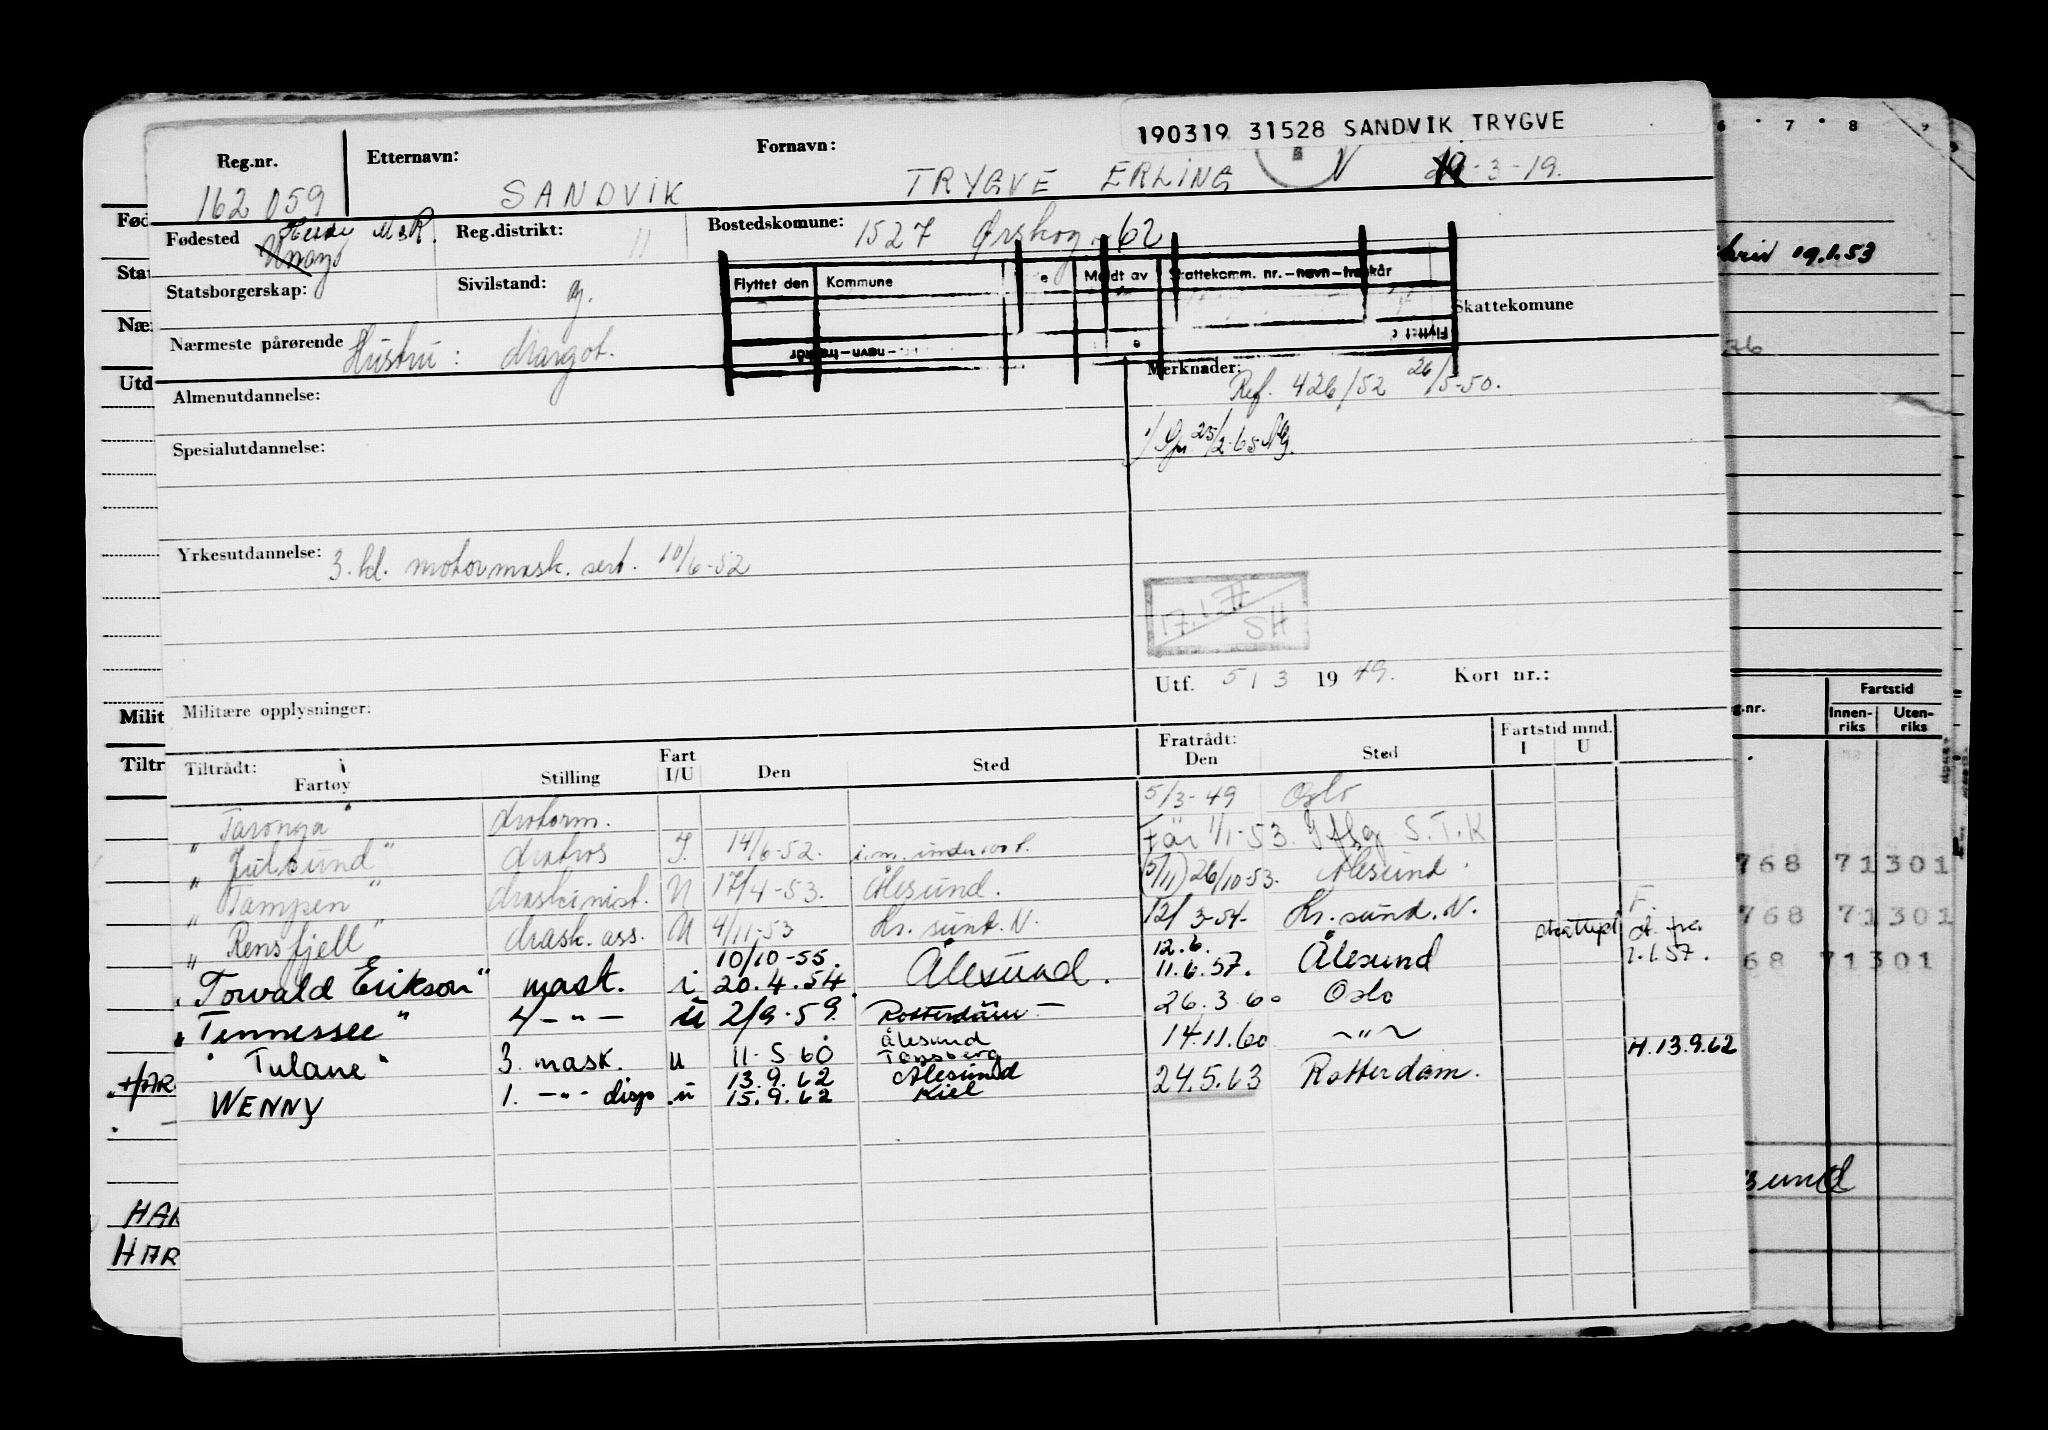 190319 31528 SANDVIK TRYGVE
Reg.nr. Etternavn: Fornavn:
162 059 SANDVIK TRYGVE ERLING 19-3-19.
Fødested Herøy M&R. Reg.distrikt: 11 Bostedskomune: 1527 Ørskog 62
Statsborgerskap: Sivilstand: g.
Flyttet den Kommune Meldt av Skattekomm. nr.–navn–trekkår
Skattekomune
Nærmeste pårørende Hustru: Margot.
Almenutdannelse: Merknader: Ref. 426/52 26/5-50.
Spesialutdannelse: 25/2-65
Yrkesutdannelse: 3. kl. motormask. sert. 10/6-52
17.1.
SH
Utf. 5/3 1949. Kort nr.:
Militære opplysninger:
Tiltrådt: Fartøy Stilling Fart I/U Den Sted Fratrådt: Den Sted Fartstid mnd. I U
"Taronga" Motorm. 5/3-49 Oslo
"Julsund" Matros I. 14/6-52. i.m. under 100 t. Før 1/1-53. S.T.K
"Tampen" Maskinist. U 17/4-53. Ålesund. (5/11) 26/10-53. Ålesund.
"Rensfjell" Mask. ass. U 4/11-53 Kr.sund. N. 12/3-54- Kr.sund. N. F.
10/10-55. 12.6.
"Torvald Erikson" mask. i 20.4.54. Ålesund. 11.6.57. Ålesund 1.1.57.
"Tennessee" 4 –"– u 2/9-59. Rotterdam 26.3.60 Oslo
Ålesund
"Tulane" 3. mask. u 11-5 60 Tønsberg 14.11.60 ~"~ H.13.9.62
13.9.62 Ålesund
WENNY 1. –"– disp. u 15.9.62 Kiel 24.5.63 Rotterdam.
Fød
Stat
Nær
Utd
Milit
Tiltr
HAR
HAR
6 7 8 9
19.1.53
g.nr. Fartstid
Innen-riks Uten-riks
768 71301
768 71301
68 71301
sund